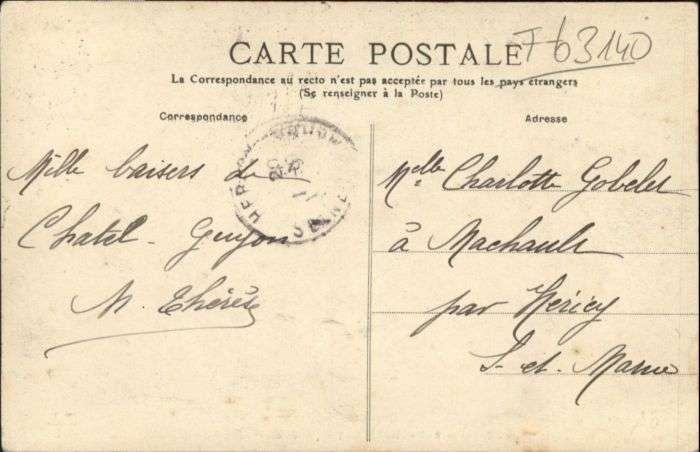 F 63140
CARTE POSTALE
La Correspondance au recto n'est pas acceptée par tous les pays étrangers
(Se renseigner à la Poste)
Correspondance
Adresse
Mille baisers de
Chatel-Guyon
M. Thérèse
Melle Charlotte Gobelet
à Machault
par Héricy
S.-et-Marne